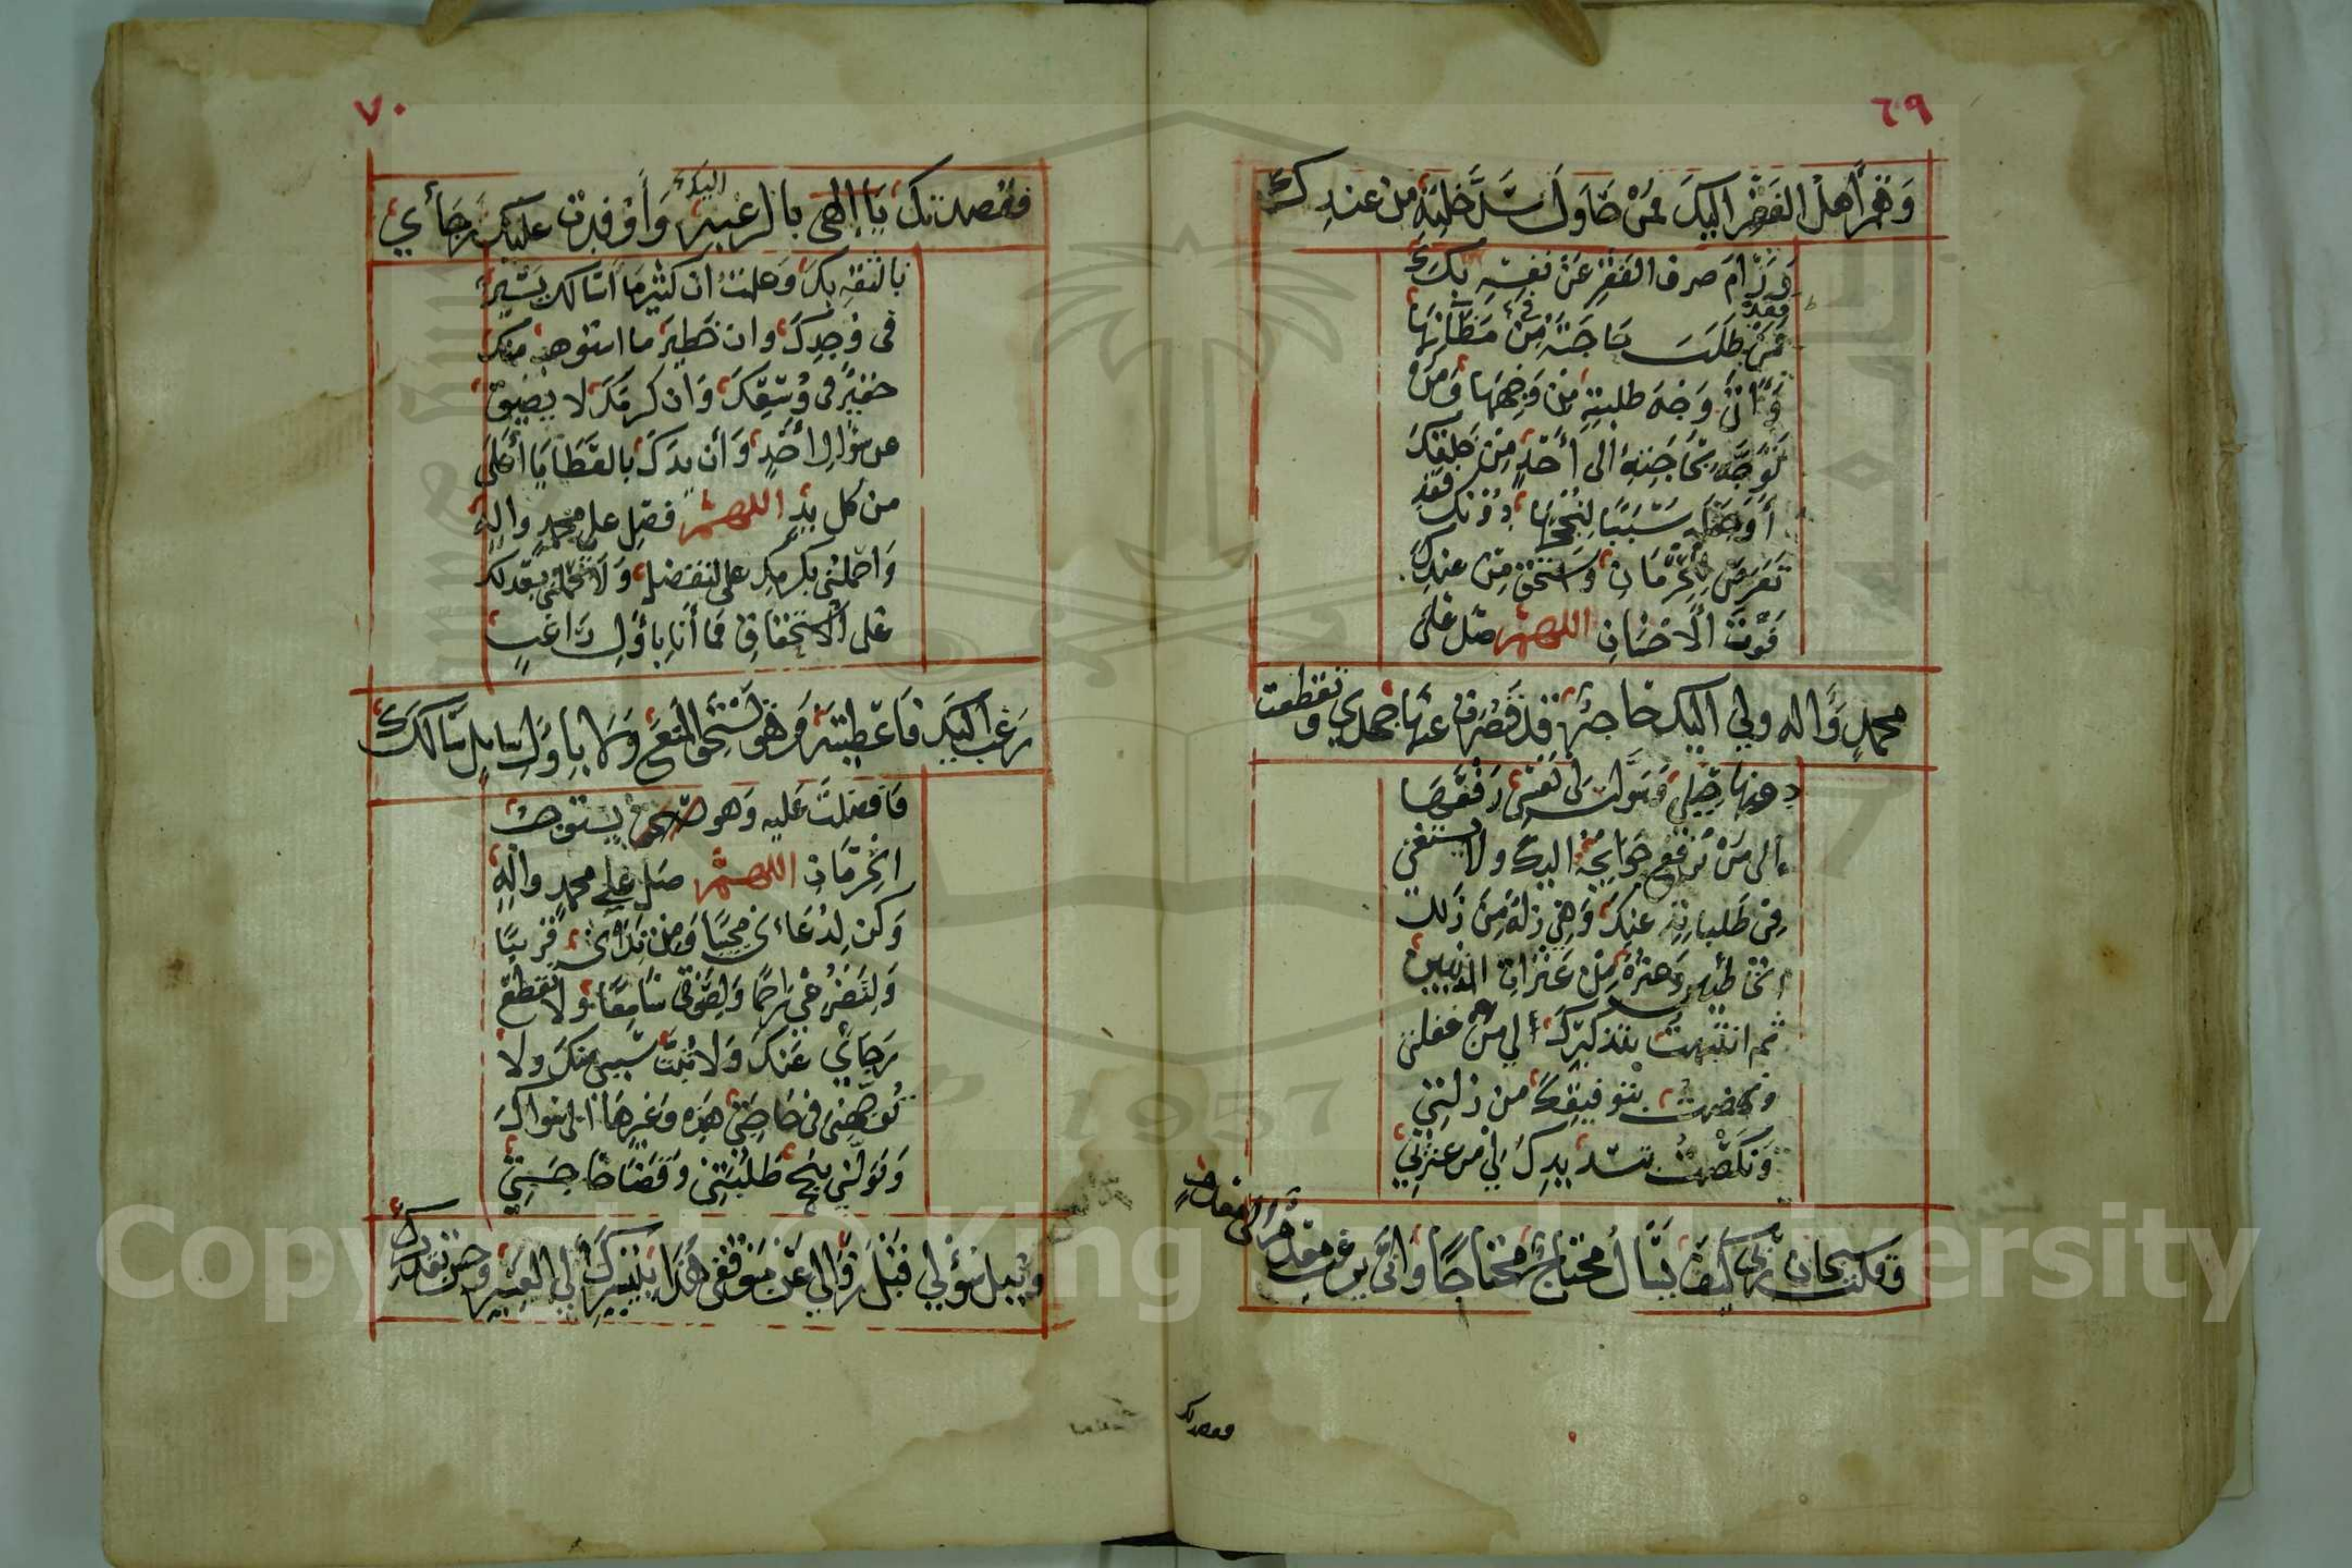 ٦٩
وَهُمْ أهل الفَقْر اليكَ فمَنْ حَاوَلَ سَدَّ خَلَّتِه من عندِك
وَرَامَ صرف الفَقْرِ عَنْ نفسِهِ بكَ
فقد
طَلَبَ حَاجَتَهُ مِنْ مَظَآنِّهَا
في
وَأتى وَجْهَ طلبتِهِ مِن وَجْهِهَا وَمَنْ
تَوَجَّهَ بِحَاجَتِهِ الى أَحَدٍ مِنْ خَلقِكَ
أوْ جَعَلَه سَبَبًا لِنُجْحِهَا دُوْنَكَ فقد
تَعَرَّضَ لِلْحِرْمَانِ وَاسْتَحَقَّ مِنْ عِنْدِكَ
فَوْتَ الْأِحْسَانِ اللهم صَل عَلى
محمدٍ وَّاله ولي اليك حَاجة قد قَصُرَت عَنْهَا جهدي وتقطعت
دونها حِيَلي وَسَوَّلت لي نَفْسِي رَفْعَهَا
الى مَنْ يَرْفَع حَوَايِجَهُ اليك ولا يستغني
في طَلباتِهِ عنكَ وَهِيَ زَلة مِنْ زَلل
الخَاطئين وَعثرة مِنْ عَثَرَاتِ المذنبين
ثم انتبهت بتذكيرك لي من غفلتي
ونهضت بتوفيقِكَ من زلتي
وَنَكَصْتُ بتسْديدِكَ لي من عثرتي
وقلت سبحان ربي كيف يَسْأل محتاج محتاجًا وَأنى يرغب معدم الى معدم
فقصدتك
٧٠
فقصدتك يَا إلهي بالرغبة وَأوْفدت عليكَ رجَائي
اليك
بالثقةِ بكَ وَعلمت ان كثير مَا أسالك يَسِيْر
في وُجْدِكَ وان خَطير ما استوهبه منك
حَقيرٌ في وُسْعِكَ وَان كرمَكَ لا يضيق
عن سؤالِ أحَدٍ وَأن يدَكَ بالعَطَايَا أَعْلَى
من كل يَدٍ اللهم فصلِ على محمدٍ والهِ
وَاحملني بكرمِكَ على التفضلِ وَلَا تحملني بعَدلك
عَلى الاستحقاقِ فما أَنا بأوَّلِ رَاغبٍ
رَغبَ اليكَ فَأعطيته وَهو يَسْتَحق المنع وَلا بأوَّلِ سايلٍ سَألكَ
فَأفضلتَ عَليه وَهو يستوجب
الحِرْمَانَ اللهم صَلِ علي محمد والهِ
وَكن لِدُعَائي مجيبًا وَمِن نِدَائي قريبًا
وَلِتَضَرُّعي رَاحمًا وَلِصَوْتي سَامِعًا وَلا تقطع
رَجَائي عَنكَ وَلا تَبُتَّ سببي منكَ ولا
تُوَجِّهْني في حَاجَتي هَذِه وَغيرِهَا الى سواكَ
وَتَوَلَّني بنُجح طَلِبَتِي وَقَضَاءِ حَاجَتِي
ونيل سُؤْلي قَبْلَ زَوَالي عَنْ مَوْقِفي هَذَا بتيسيرِكَ لي العسير وحسن تقديرك